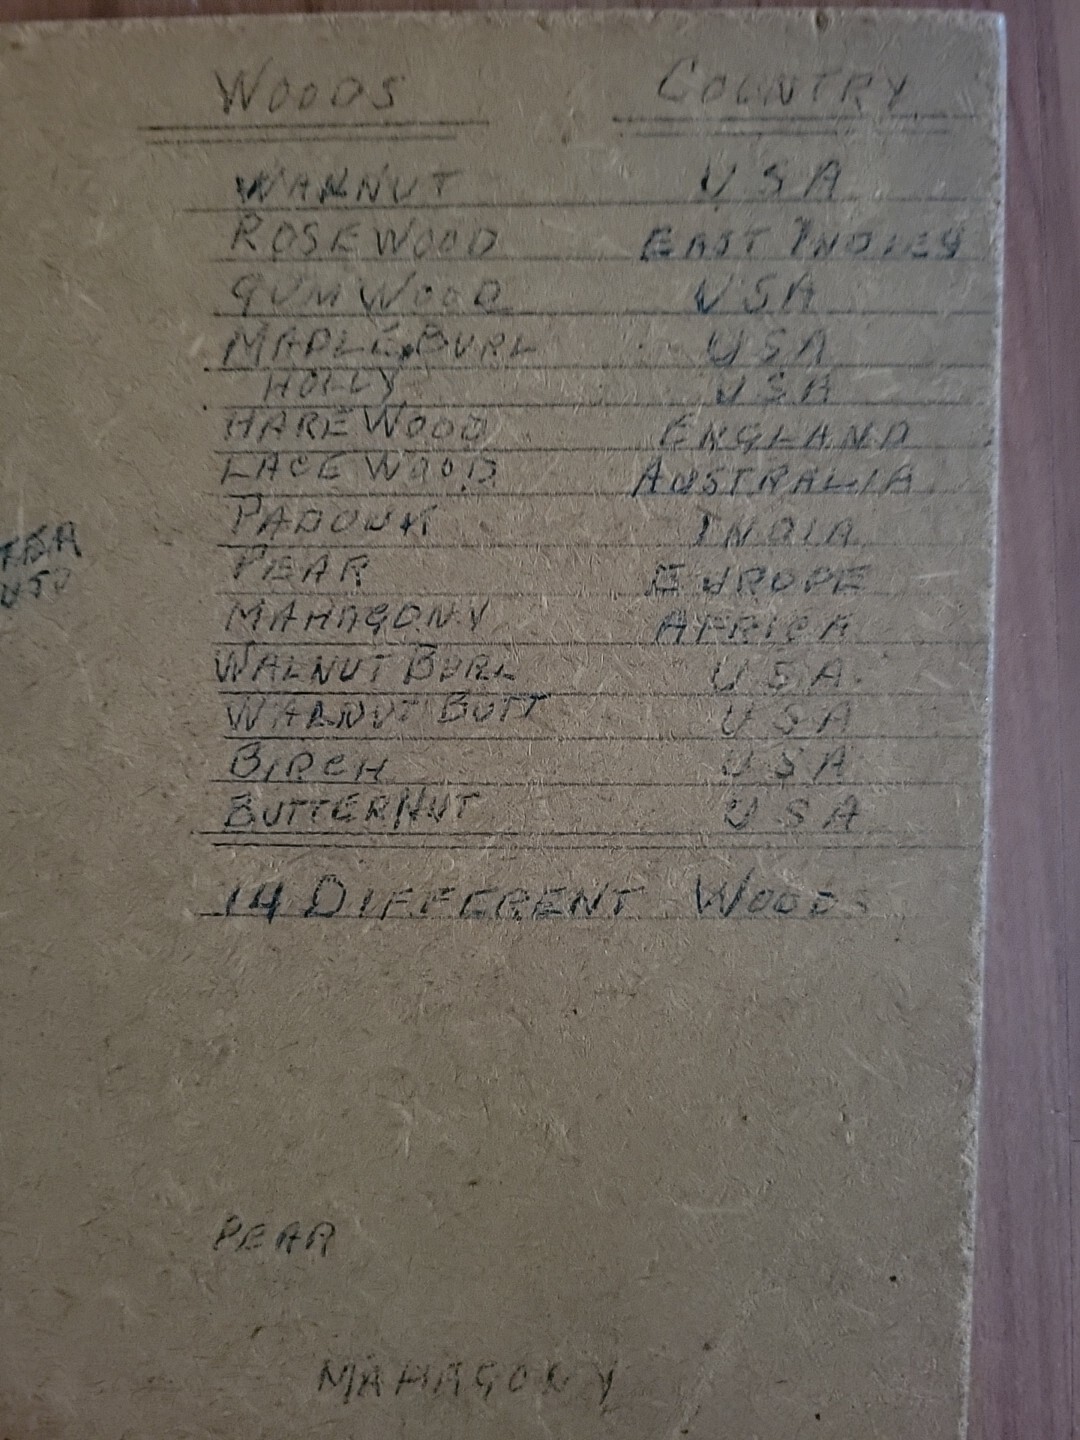 WOODS COUNTRY
WALNUT USA
ROSEWOOD EAST INDIES
GUMWOOD USA
MAPLE BURL USA
HOLLY USA
HAREWOOD ENGLAND
LACEWOOD AUSTRALIA
PADOUK INDIA
PEAR EUROPE
MAHAGONY AFRICA
WALNUT BURL USA
WALNUT BUTT USA
BIRCH USA
BUTTERNUT USA
14 DIFFERENT WOODS
PEAR
MAHAGONY